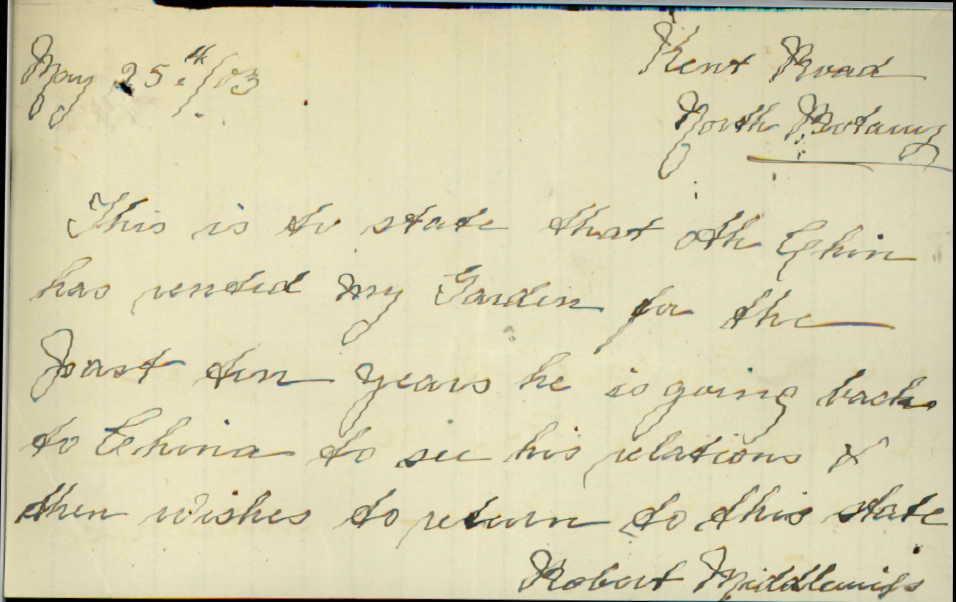 May 25th/03
Kent Road
North Botany
This is to state that Oth Chin
has rented my Garden for the
Past ten years he is going back
to China to see his relations &
then wishes to return to this state
Robert